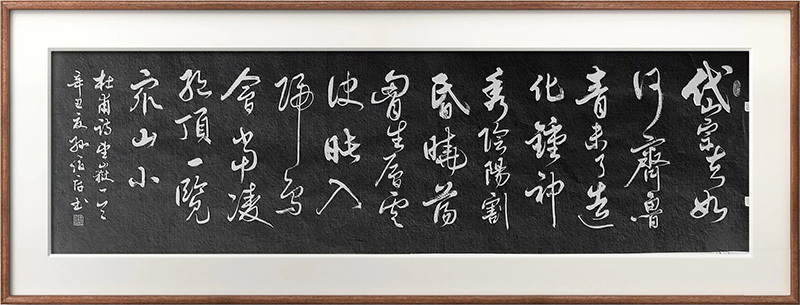 岱宗夫如
何齊魯
青未了造
化鍾神
秀陰陽割
昏曉蕩
胷生層雲
決眥入
歸鳥
會當凌
絕頂一覽
眾山小
杜甫詩望嶽一首
辛丑夏孫